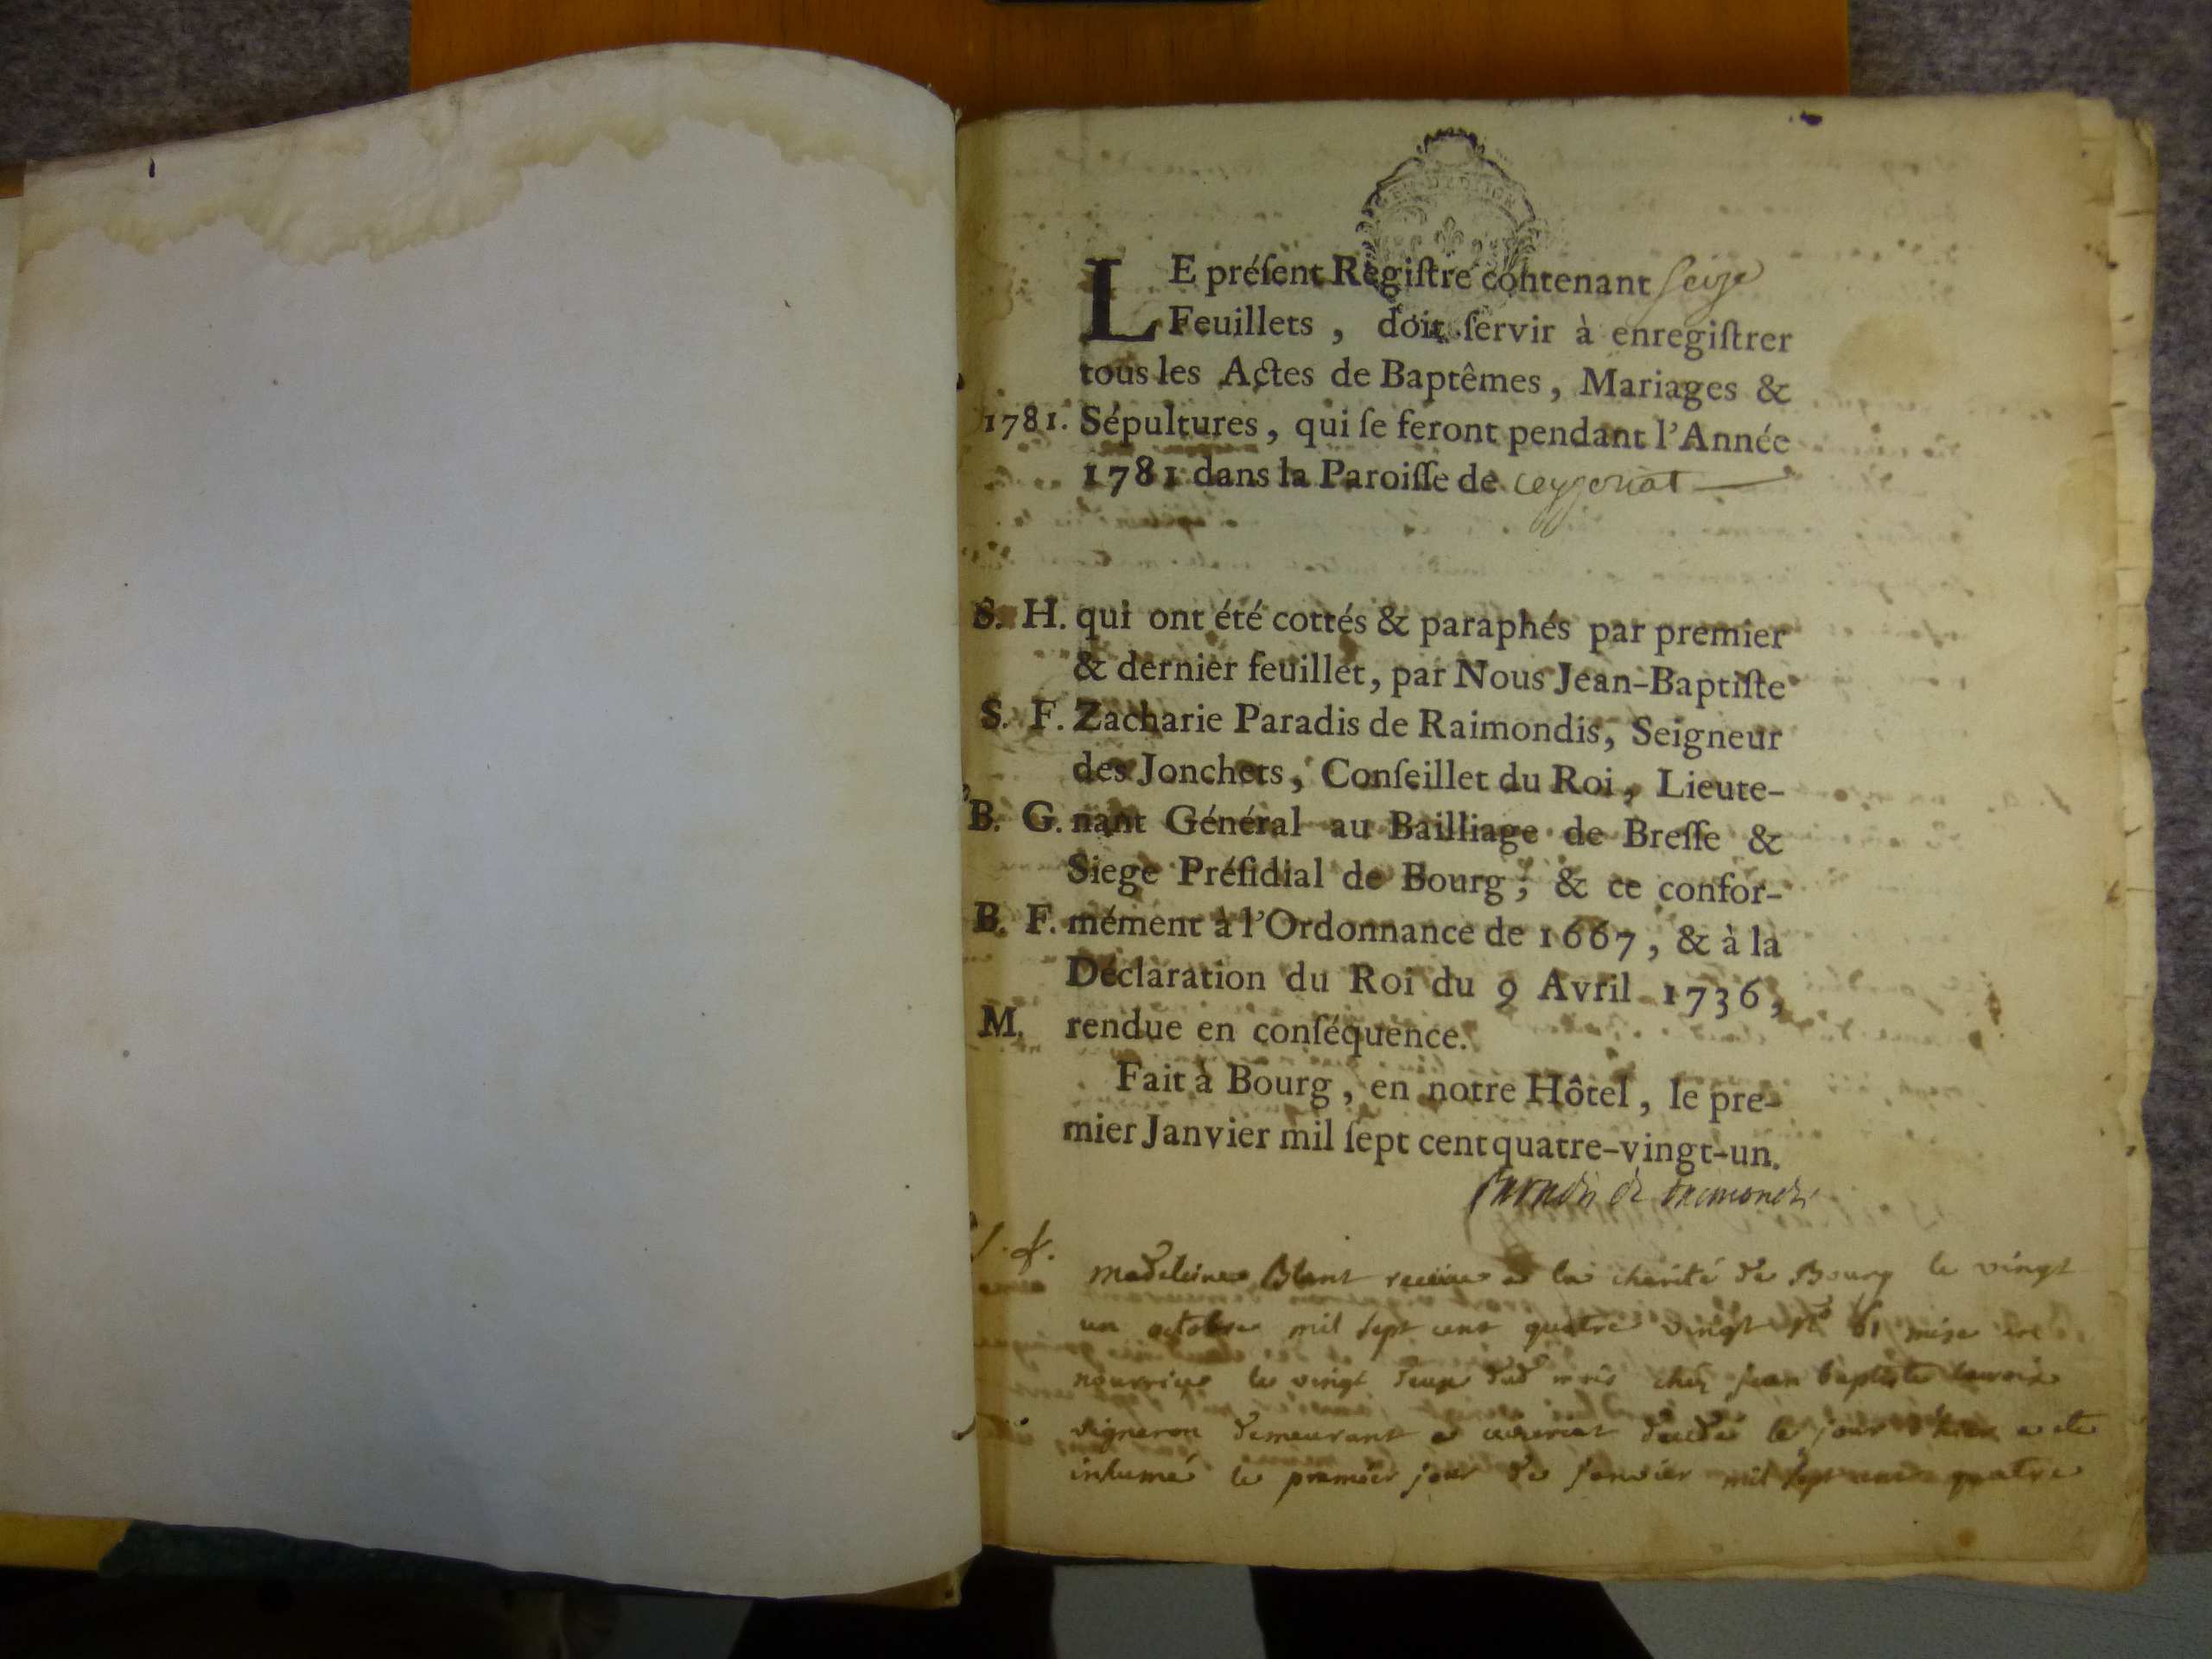 GEN. DE DIJON
LE préſent Regiſtre contenant Seize
Feuillets, doit ſervir à enregiſtrer
tous les Actes de Baptêmes, Mariages &
1781. Sépultures, qui ſe feront pendant l'Année
1781 dans la Paroiſſe de ceyzeriat
S. H. qui ont été cottés & paraphés par premier
& dernier feuillet, par Nous Jean-Baptiſte
S. F. Zacharie Paradis de Raimondis, Seigneur
des Jonchets, Conſeiller du Roi, Lieute-
B. G. nant Général au Bailliage de Breſſe &
Siege Préſidial de Bourg; & ce confor-
B. F. mément à l'Ordonnance de 1667, & à la
Déclaration du Roi du 9 Avril 1736,
M. rendue en conſéquence.
Fait à Bourg, en notre Hôtel, le pre-
mier Janvier mil ſept cent quatre-vingt-un.
Paradis de Raimondis
S. f.
madeleine Blant recüe a la charité de Bourg le vingt
un octobre mil sept cent quatre vingt no 61 mise en
nourrice le vingt deux dud mois chez jean baptiste
vigneron demeurant a decedé le jour d'hier a ete
inhumé le premier jour de janvier mil sept cent quatre